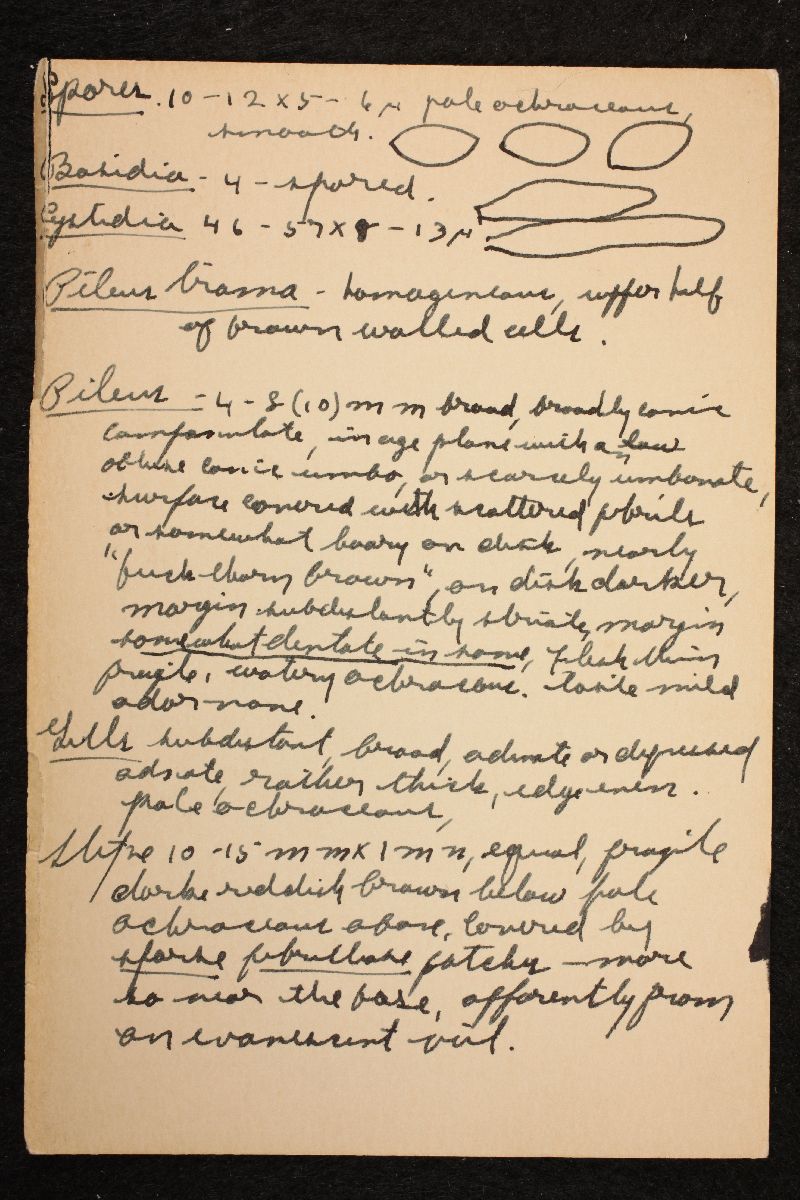 Spores. 10 - 12 x 5 - 6 μ pale ochraceous,
smooth.
Basidia - 4 - spored.
Cystidia 46 - 57 x 8 - 13 μ
Pileus trama - homogeneous, upper half
of brown walled cells.
Pileus - 4 - 8 (10) mm broad, broadly conic
campanulate, in age plane with a low
obtuse conic umbo, or scarcely umbonate,
surface covered with scattered fibrils
or somewhat hoary on disk, nearly
"buckthorn brown", on disk darker,
margin subdistantly striate, margin
somewhat dentate in some, flesh thin
fragile, watery ochraceous. taste mild
odor none.
Gills subdistant, broad, adnate or depressed
adnate, rather thick, edge even.
pale ochraceous,
Stipe 10 - 15 mm x 1 mm, equal, fragile
darke reddish brown below pale
ochraceous above, covered by
sparse fibrillose patches - more
so near the base, apparently from
an evanescent veil.